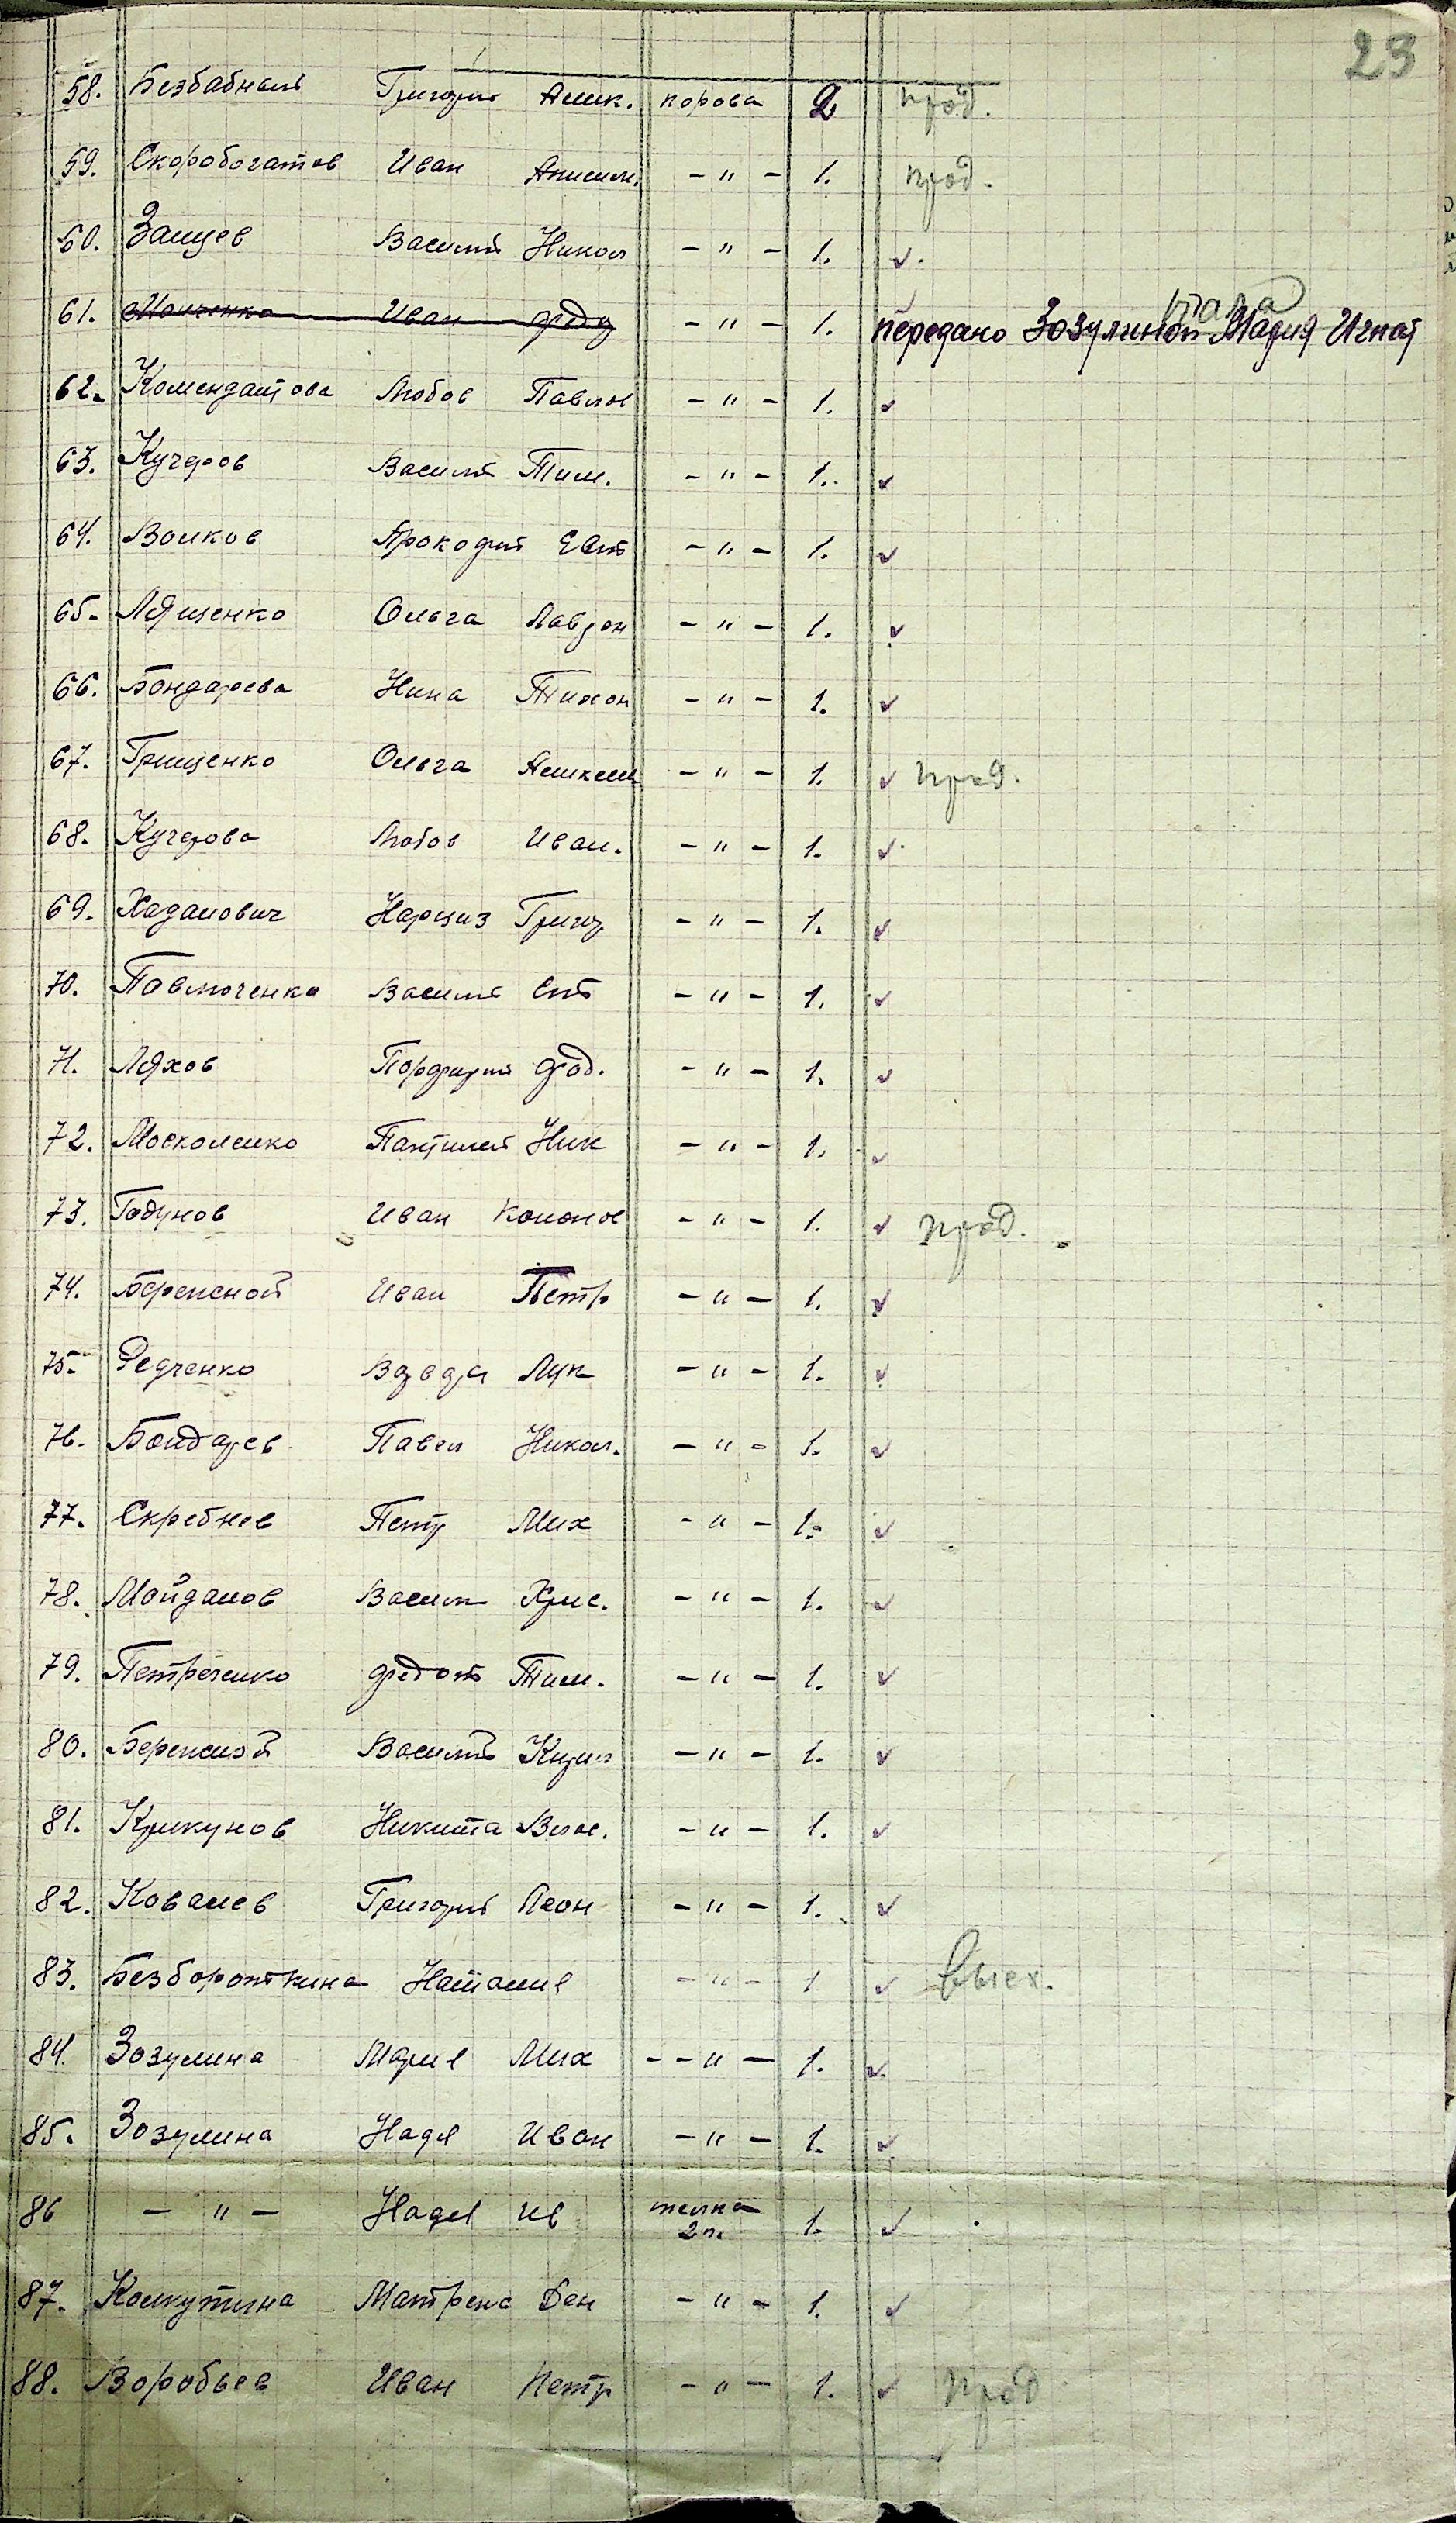 23
58. Безбабный Григорий Алик. корова 2 прод.
59. Скоробогатов Иван Анисим. - " - 1. прод.
60. Зайцев Василий Никол - " - 1. ✓.
61. Иван Федор - " - 1. передано Зозулиной Мария Игнат
62. Комендантова Любов Павлов - " - 1. ✓
63. Кучеров Василий Тим. - " - 1. ✓
64. Волков Прокофий Евт - " - 1. ✓
65. Лященко Ольга Лаврен - " - 1. ✓
66. Бондарева Нина Тихон - " - 1. ✓
67. Грищенко Ольга Алексеев - " - 1. ✓ прод.
68. Кучерова Любов Иван. - " - 1. ✓
69. Хаданович Нарциз Григор - " - 1. ✓
70. Павлюченко Василий - " - 1. ✓
71. Ляхов Порфирий Фод. - " - 1. ✓
72. Москаленко Пантилей Ник - " - 1. ✓
73. Годунов Иван Кононов - " - 1. ✓ прод.
74. Бережной Иван Петр - " - 1. ✓
75. Редченко Лук - " - 1. ✓
76. Бондарев Павел Никол. - " - 1. ✓
77. Скребнев Петр Мих - " - 1. ✓
78. Майданов Васили Хрис. - " - 1. ✓
79. Петреченко Федот Тим. - " - 1. ✓
80. Бережной Василий Кирил - " - 1. ✓
81. Крикунов Никита Влас. - " - 1. ✓
82. Ковалев Григорий Леон - " - 1. ✓
83. Безбороткина Наталия - " - 1 ✓ Выех.
84. Зозулина Мария Мих - - " - 1. ✓
85. Зозулина Надя Иван - " - 1. ✓
86 - " - Надя Ив телка 2 л. 1. ✓
87. Колкутина Матрена Ден - " - 1. ✓
88. Воробьев Иван Петр - " - 1. ✓ прод